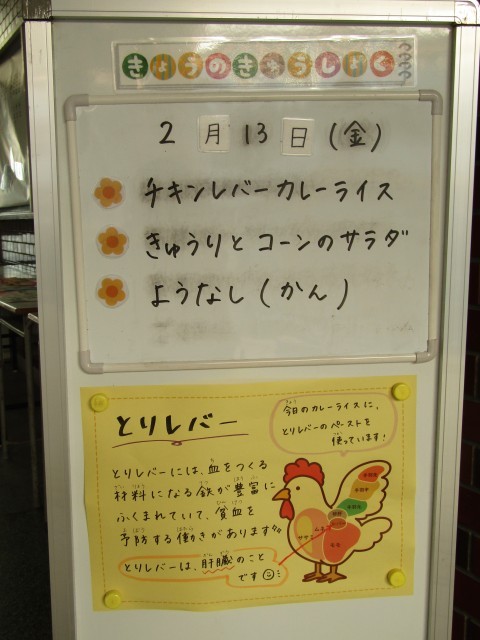 きょうのきゅうしょく
2月13日(金)
チキンレバーカレーライス
きゅうりとコーンのサラダ
ようなし(かん)
とりレバー
今日のカレーライスに、
とりレバーのペーストを
使っています!
とりレバーには、血をつくる
材料になる鉄が豊富に
ふくまれていて、貧血を
予防する働きがあります!!
とりレバーは、肝臓のこと
です
ササミ